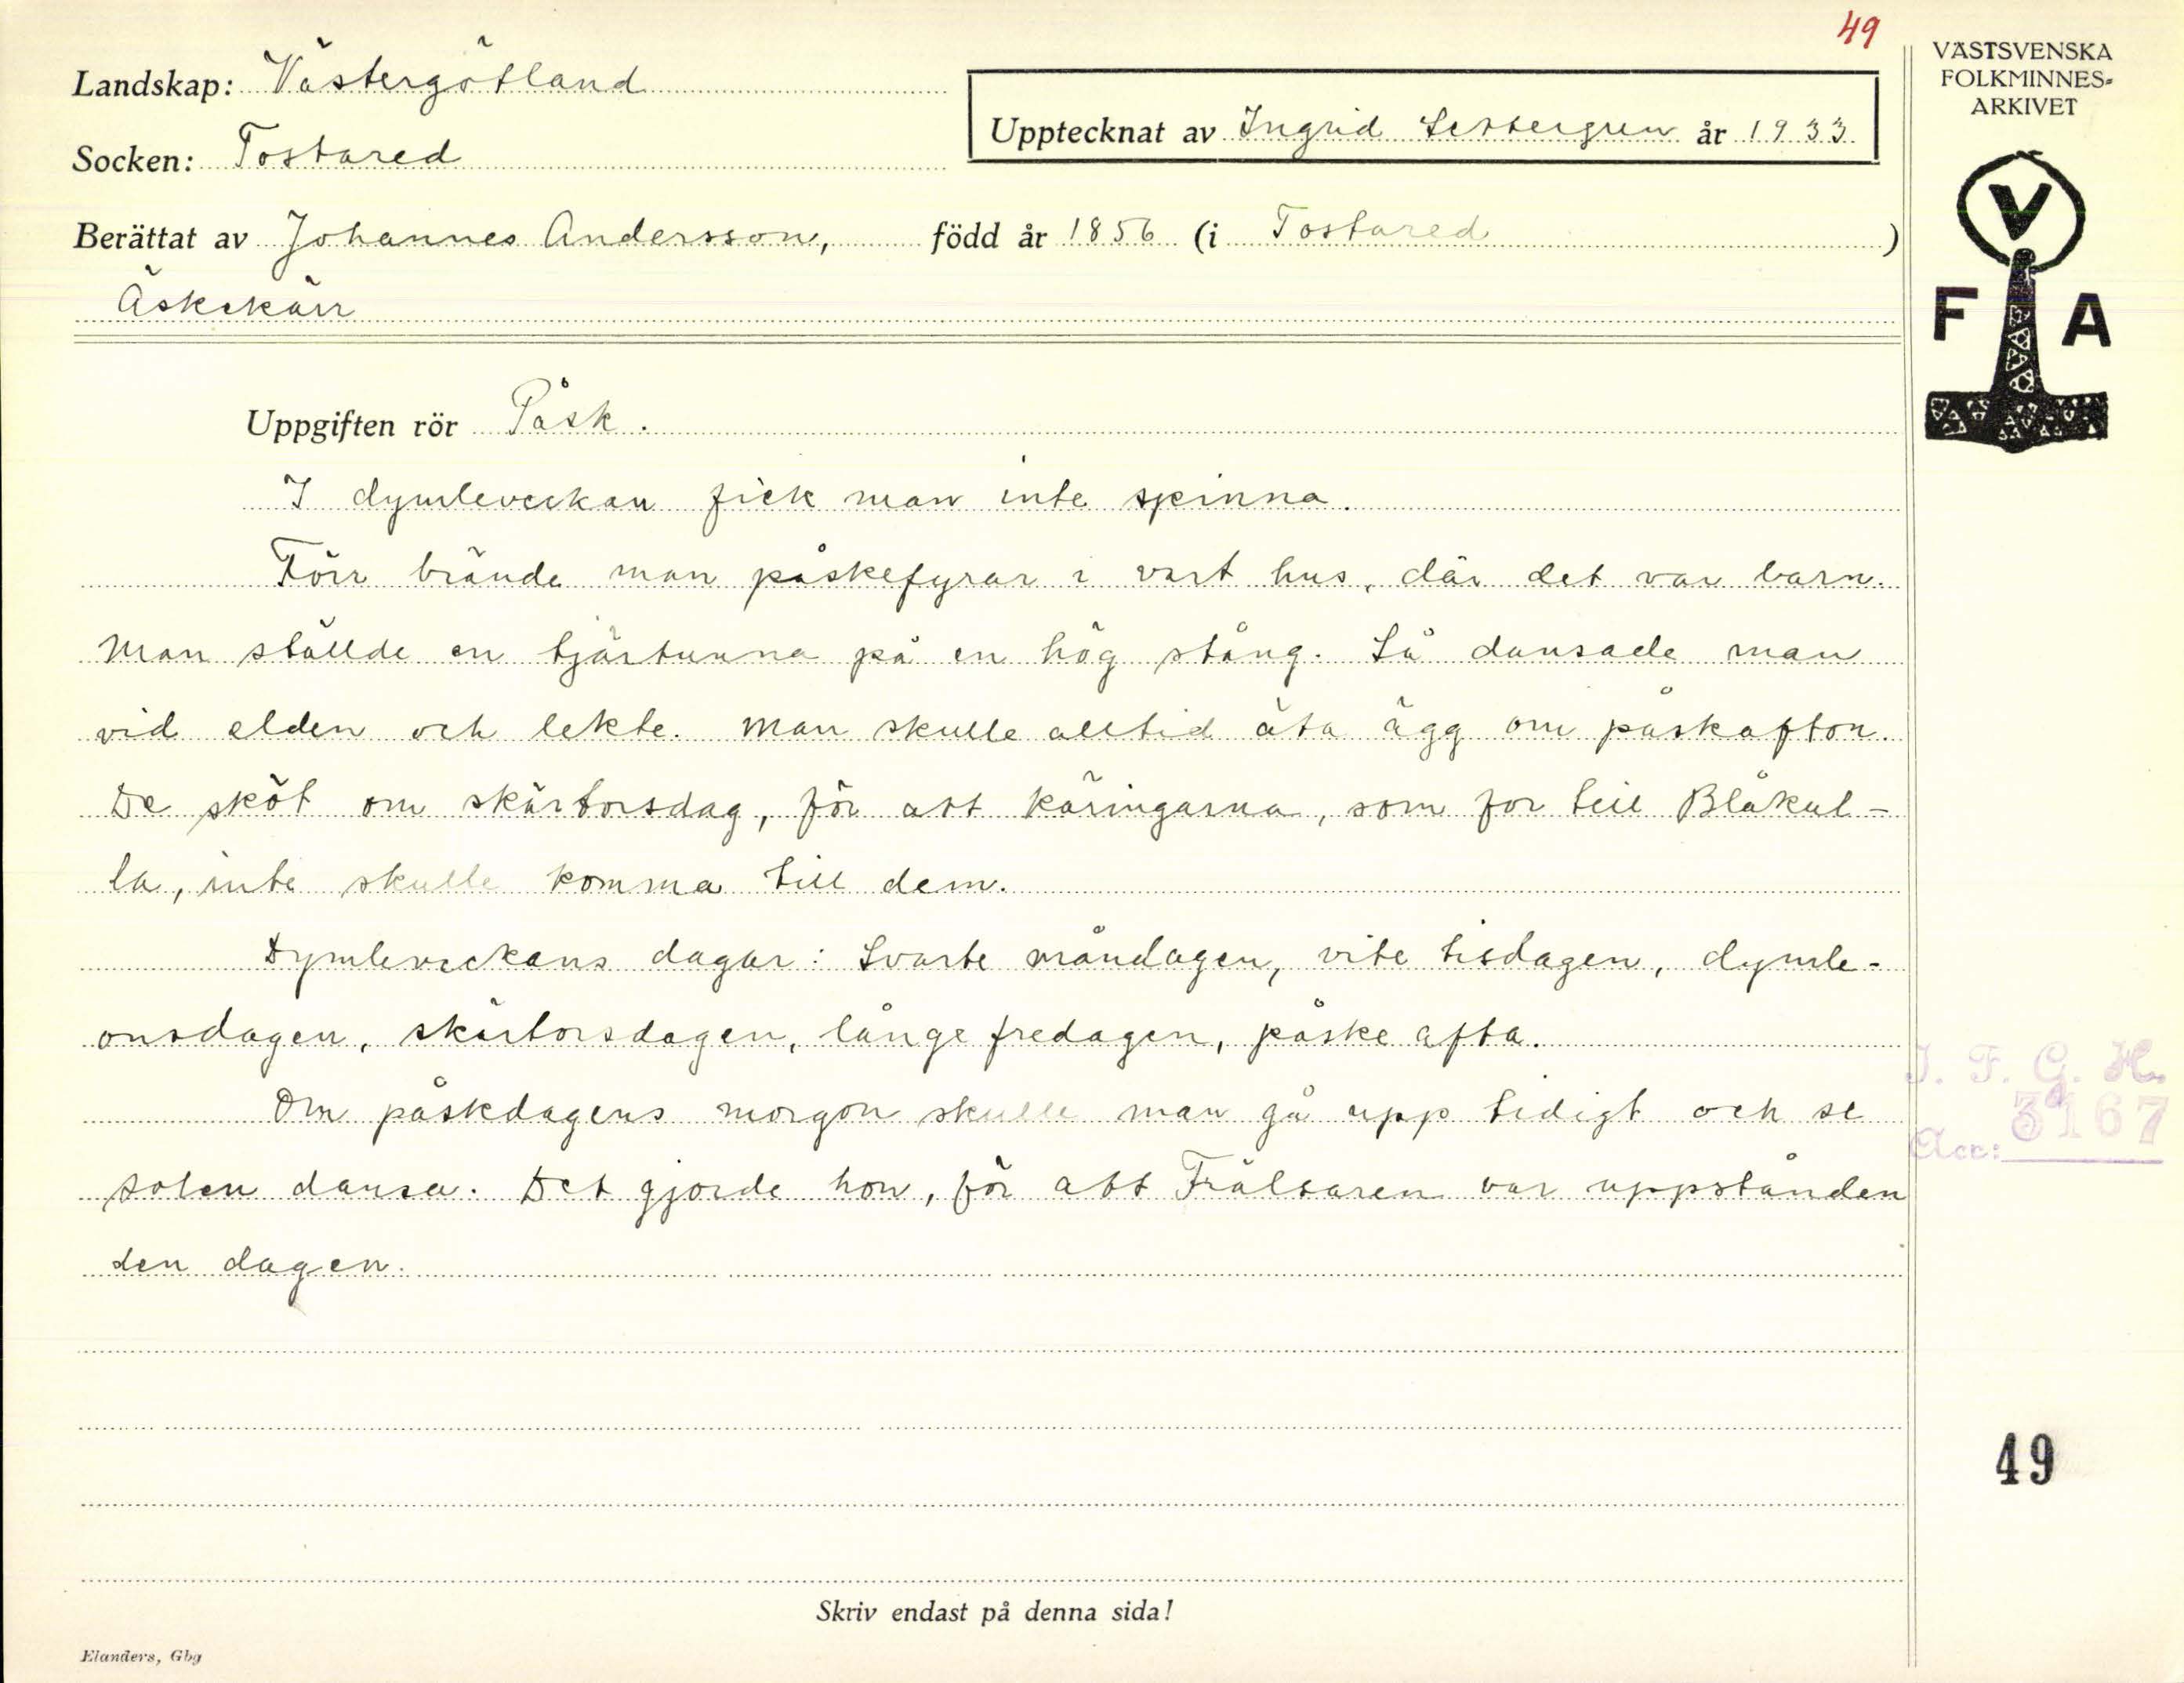 49
VÄSTSVENSKA
FOLKMINNES-
ARKIVET
Landskap: Västergötland
Upptecknat av Ingrid år 1933.
Socken: Tostared
Berättat av Johannes Andersson, född år 1856 (i Tostared)
Äskekärr
V
F A
Uppgiften rör Påsk.
I dymleveckan fick man inte spinna.
Förr brände man påskefyrar i vart hus, där det var barn.
Man ställde en tjärtunna på en hög stång. Så dansade man
vid elden och lekte. Man skulle alltid äta ägg om påskafton.
De sköt om skärtorsdag, för att käringarna, som for till Blåkul-
la, inte skulle komma till dem.
Dymleveckans dagar: Svarte måndagen, vite tisdagen, dymle-
onsdagen, skärtorsdagen, långe fredagen, påske afta.
Om påskdagens morgon skulle man gå upp tidigt och se
solen dansa. Det gjorde hon, för att Frälsaren var uppstånden
den dagen.
I. F. G. H.
Acc: 3167
49
Skriv endast på denna sida!
Elanders, Gbg